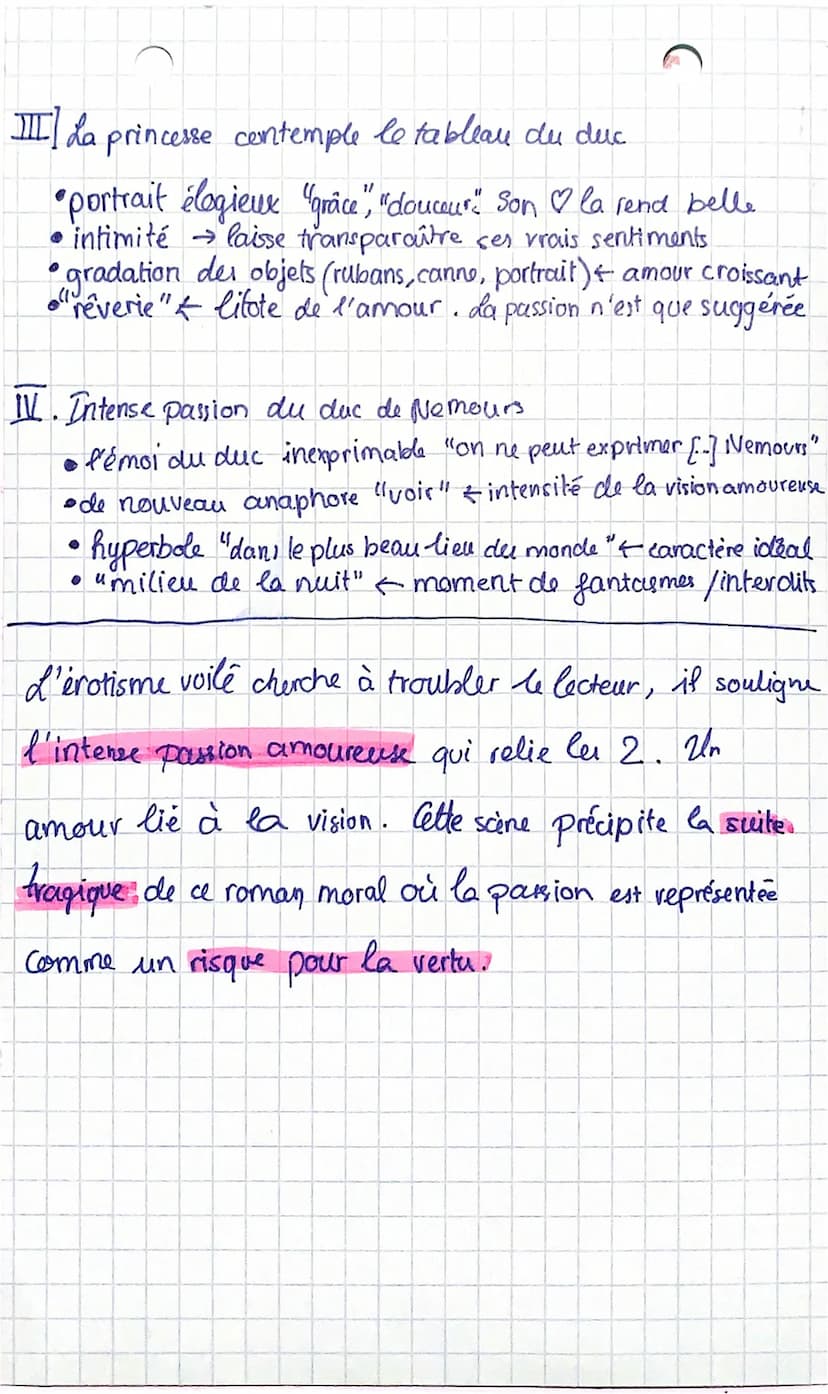 III] La princesse contemple le tableau du duc
• portrait élogieux "grâce", "douceur". Son ♡ la rend belle
• intimité → laisse transparaître ses vrais sentiments
• gradation des objets (rubans, canne, portrait) ← amour croissant
• "rêverie" ← litote de l'amour. La passion n'est que suggérée
IV. Intense passion du duc de Nemours
• l'émoi du duc inexprimable "on ne peut exprimer [..] Nemours"
• de nouveau anaphore "voir" ← intensité de la vision amoureuse
• hyperbole "dans le plus beau lieu du monde" ← caractère idéal
• "milieu de la nuit" ← moment de fantasmes / interdits
L'érotisme voilé cherche à troubler le lecteur, il souligne
l'intense passion amoureuse qui relie les 2. Un
amour lié à la vision. Cette scène précipite la suite
tragique de ce roman moral où la passion est représentée
comme un risque pour la vertu.